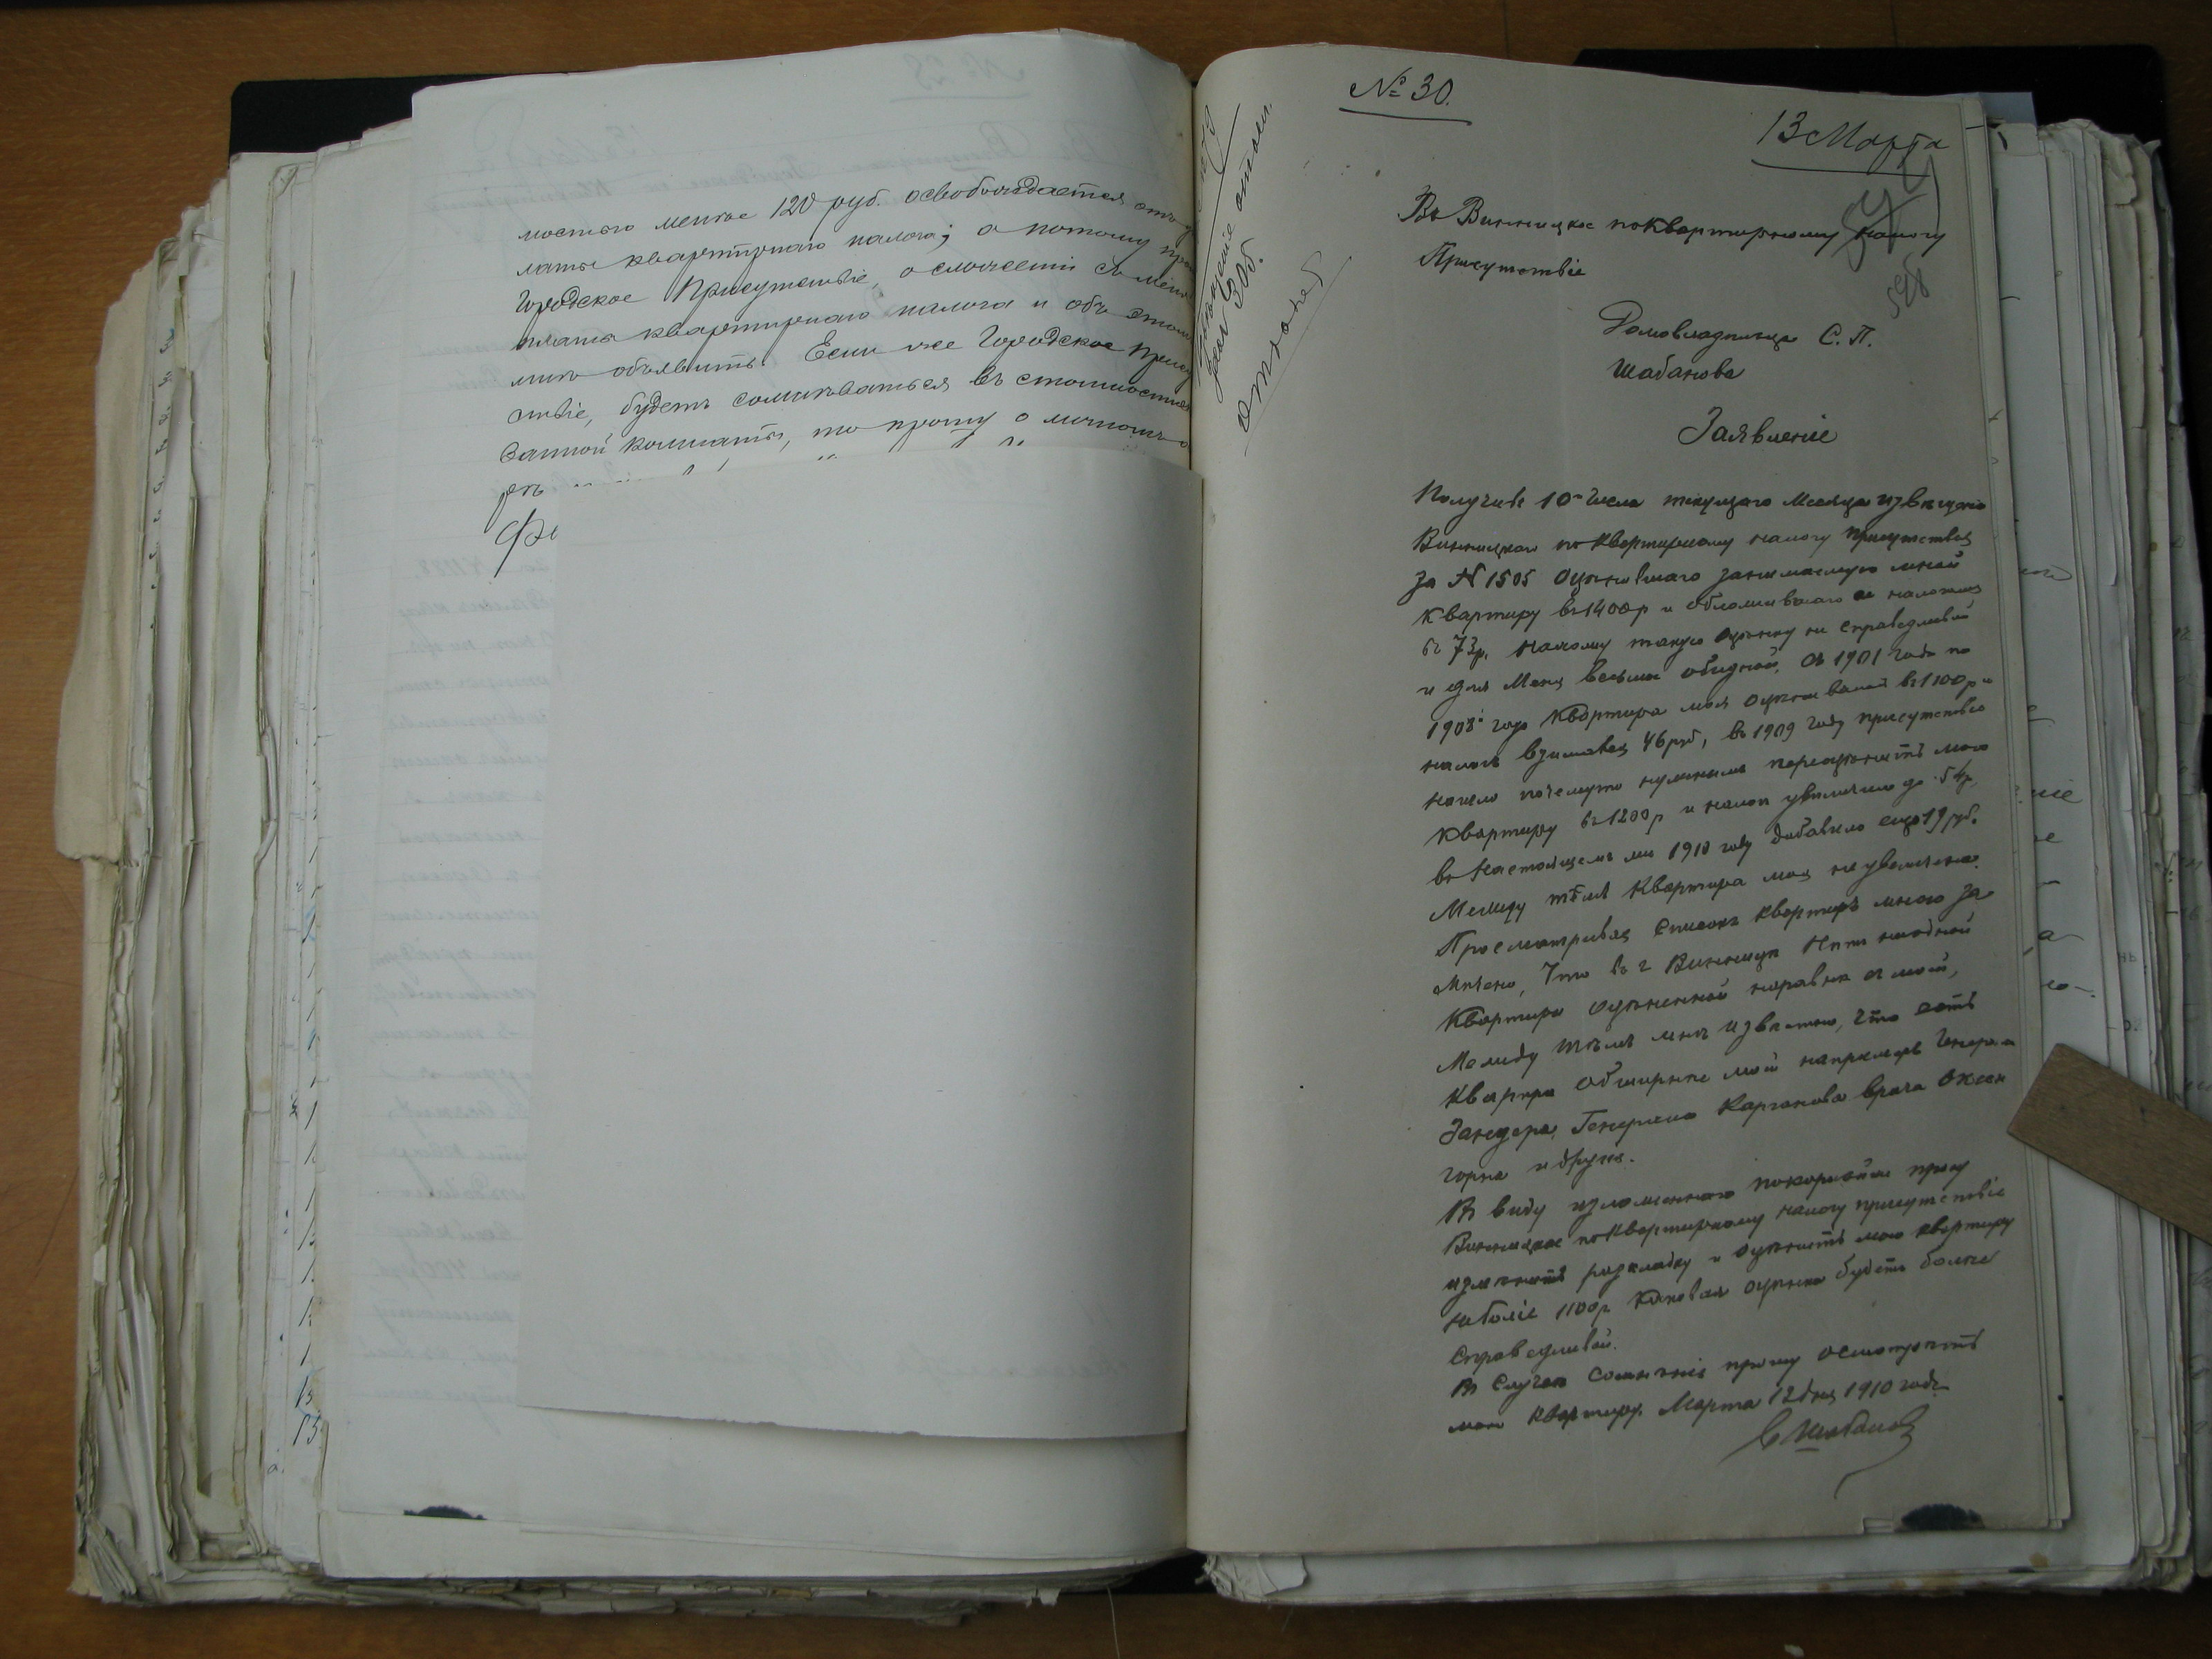 мостью менѣе 120 руб. освобождается отъ
латы квартирнаго налога; а потому
Городское Присутствіе, о сложеніи съ меня
плата квартирнаго налога и объ этомъ
мнѣ объявить. Если же Городское
ствіе, будетъ сомнѣваться въ стоимости
занной комнаты, то прошу о личномъ
№ 30.
13 Марта
Въ Винницкое по квартирному налогу
Присутствіе
598
Домовладѣльца С. П.
Шабанова
Заявленіе
Получивъ 10го числа текущаго Месяца извѣщеніе
Винницкаго по квартирному налогу присутствія
за № 1505 оценившаго занимаемую мной
квартиру въ 1400р и обложившаго налогомъ
въ 73р, нахожу такую оценку не справедливой
и для Меня весьма обидной. Съ 1901 года по
1908й годъ квартира моя въ 1100р и
налогъ взимался 46 руб, въ 1909 году присутствіе
нашло почемуто нужнымъ переоценить мою
квартиру въ 1200р и налогъ увеличило до 54р.
въ Настоящемъ 1910 году добавило еще 19 руб.
Между тѣмъ Квартира моя не увеличена.
Просматривая Списокъ квартиръ мною за
мѣчено, Что въ г Винницѣ Нѣтъ ниодной
Квартиры оцененной наравнѣ съ моей,
Между тѣмъ мнѣ Извѣстно, что есть
обширнѣе моей напримѣръ
Зандера, Генерала Карганова врача
горна и другіе.
Въ виду изложеннаго покорнѣйше прошу
Винницкое по квартирному налогу присутствіе
изменить раскладку и оценить мою квартиру
неболѣе 1100р каковая оценка будетъ болѣе
Справедливой.
Въ Случаѣ сомненія прошу осмотрѣть
мою квартиру. Марта 12 дня 1910 года
С Шабановъ